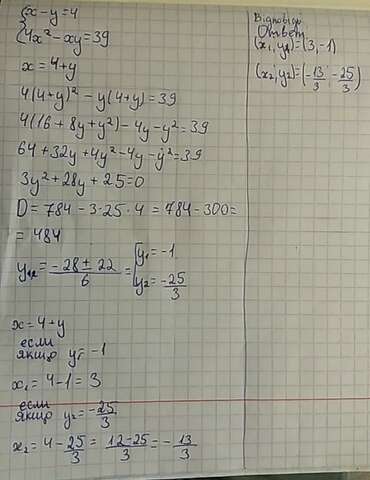 {x-y=4
4x²-xy=39
x=4+y
4(4+y)²-y(4+y)=39
4(16+8y+y²)-4y-y²=39
64+32y+4y²-4y-y²=39
3y²+28y+25=0
D=784-3·25·4=784-300=
=484
y₁,₂=(-28±22)/6=[y₁=-1
y₂=-25/3
x=4+y
если
якщо y=-1
x₁=4-1=3
если
якщо y₂=-25/3
x₂=4-25/3=(12-25)/3=-13/3
Відповідь
Ответ
(x₁,y₁)=(3,-1)
(x₂;y₂)=(-13/3;-25/3)